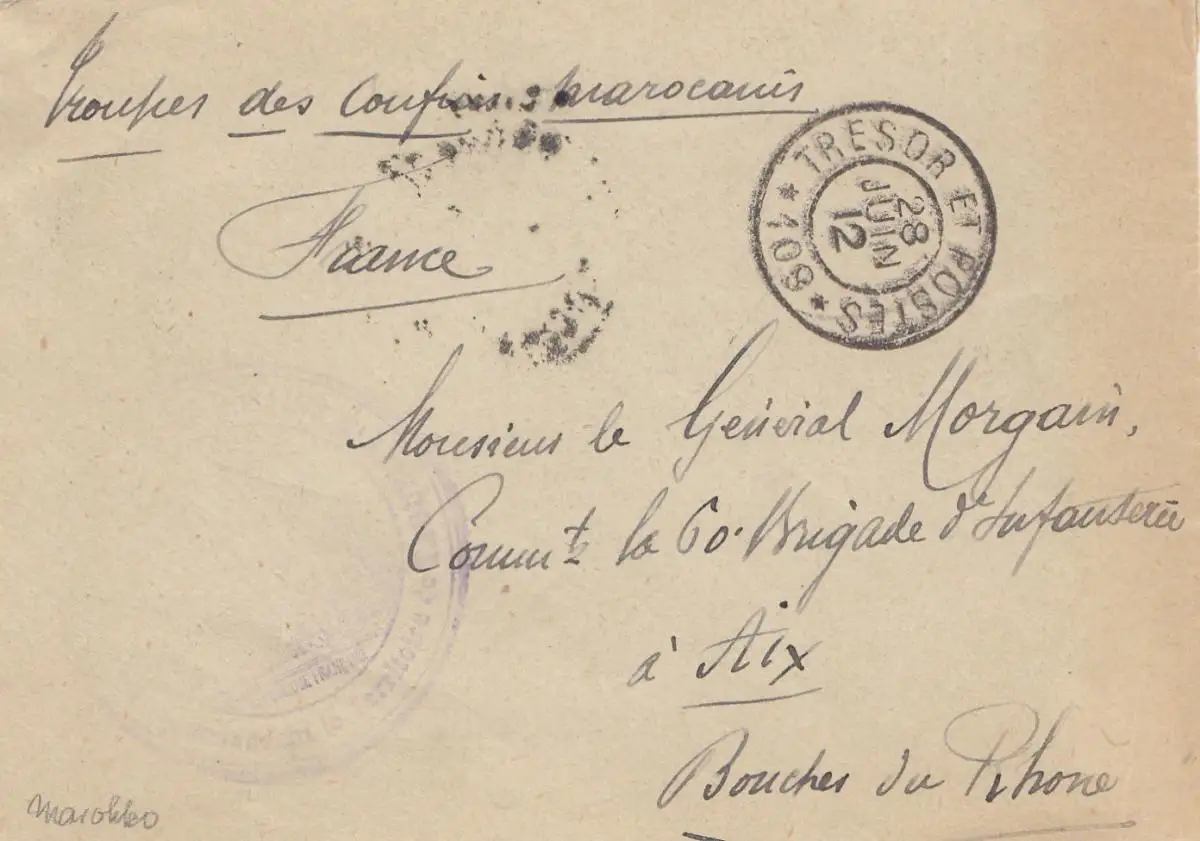 Troupes des Confins marocains
TRESOR ET POSTES
* 108 *
28
JUIN
12
France
Monsieur le Général Morgain,
Comm<sup>t</sup> la 60<sup>e</sup> Brigade d'Infanterie
à Aix
Bouches du Rhône
FRANÇAISE
Marokko